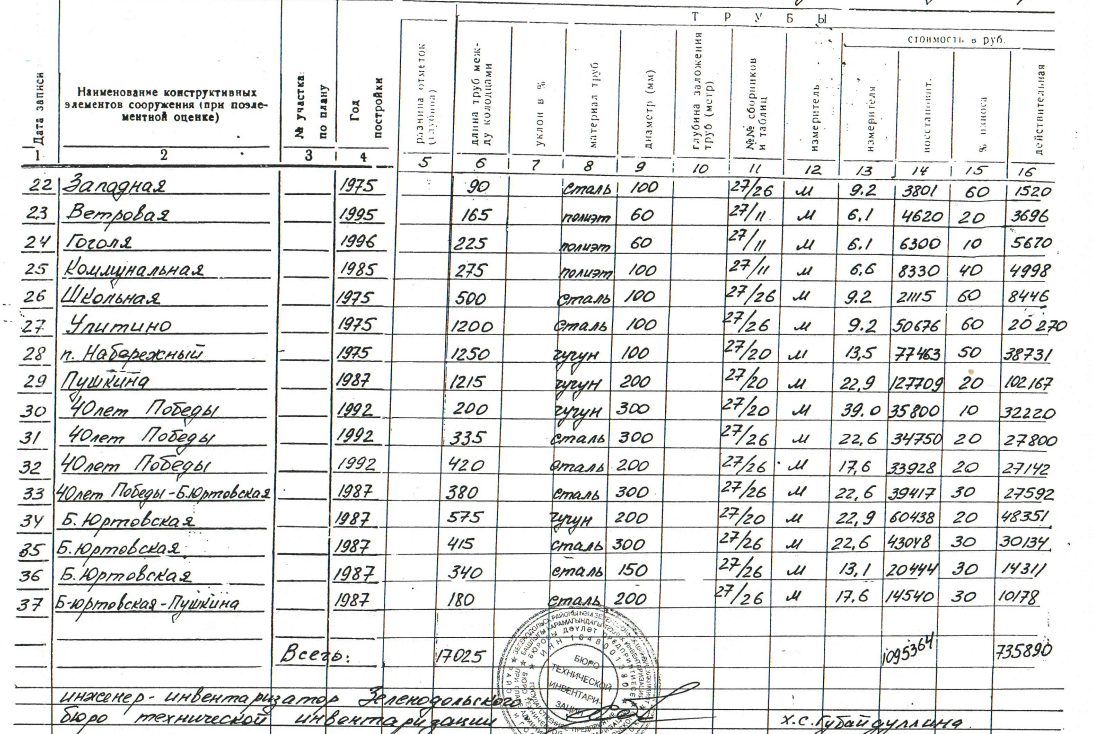 ТРУБЫ
стоимость в руб.
Дата записи | Наименование конструктивных элементов сооружения (при поэле-ментной оценке) | № участка по плану | Год постройки | разница отметок (глубина) | длина труб меж-ду колодцами | уклон в % | материал труб | диаметр (мм) | глубина заложения труб (метр) | №№ сборников и таблиц | измеритель | измерителя | восстановит. | % износа | действительная
1 2 3 4 5 6 7 8 9 10 11 12 13 14 15 16
22 Западная 1975 90 сталь 100 27/26 м 9.2 3801 60 1520
23 Ветровая 1995 165 полиэт 60 27/11 м 6,1 4620 20 3696
24 Гоголя 1996 225 полиэт 60 27/11 м 6.1 6300 10 5670
25 Коммунальная 1985 275 полиэт 100 27/11 м 6,6 8330 40 4998
26 Школьная 1975 500 сталь 100 27/26 м 9.2 21115 60 8446
27 Улитино 1975 1200 сталь 100 27/26 м 9.2 50676 60 20270
28 п. Набережный 1975 1250 чугун 100 27/20 м 13,5 77463 50 38731
29 Пушкина 1987 1215 чугун 200 27/20 м 22,9 127709 20 102167
30 40лет Победы 1992 200 чугун 300 27/20 м 39.0 35800 10 32220
31 40лет Победы 1992 335 сталь 300 27/26 м 22,6 34750 20 27800
32 40лет Победы 1992 420 сталь 200 27/26 м 17,6 33928 20 27142
33 40лет Победы-Б.Юртовская 1987 380 сталь 300 27/26 м 22,6 39417 30 27592
34 Б. Юртовская 1987 575 чугун 200 27/20 м 22,9 60438 20 48351
35 Б. Юртовская 1987 415 сталь 300 27/26 м 22,6 43048 30 30134
36 Б. Юртовская 1987 340 сталь 150 27/26 м 13,1 20444 30 14311
37 Б-Юртовская-Пушкина 1987 180 сталь 200 27/26 м 17.6 14540 30 10178
Всего: 17025 1095364 735890
БЮРО
ТЕХНИЧЕСКОЙ
ИНВЕНТАРИ-
ЗАЦИИ
инженер-инвентаризатор Зеленодольского
бюро технической инвентаризации Х.С.Губайдуллина